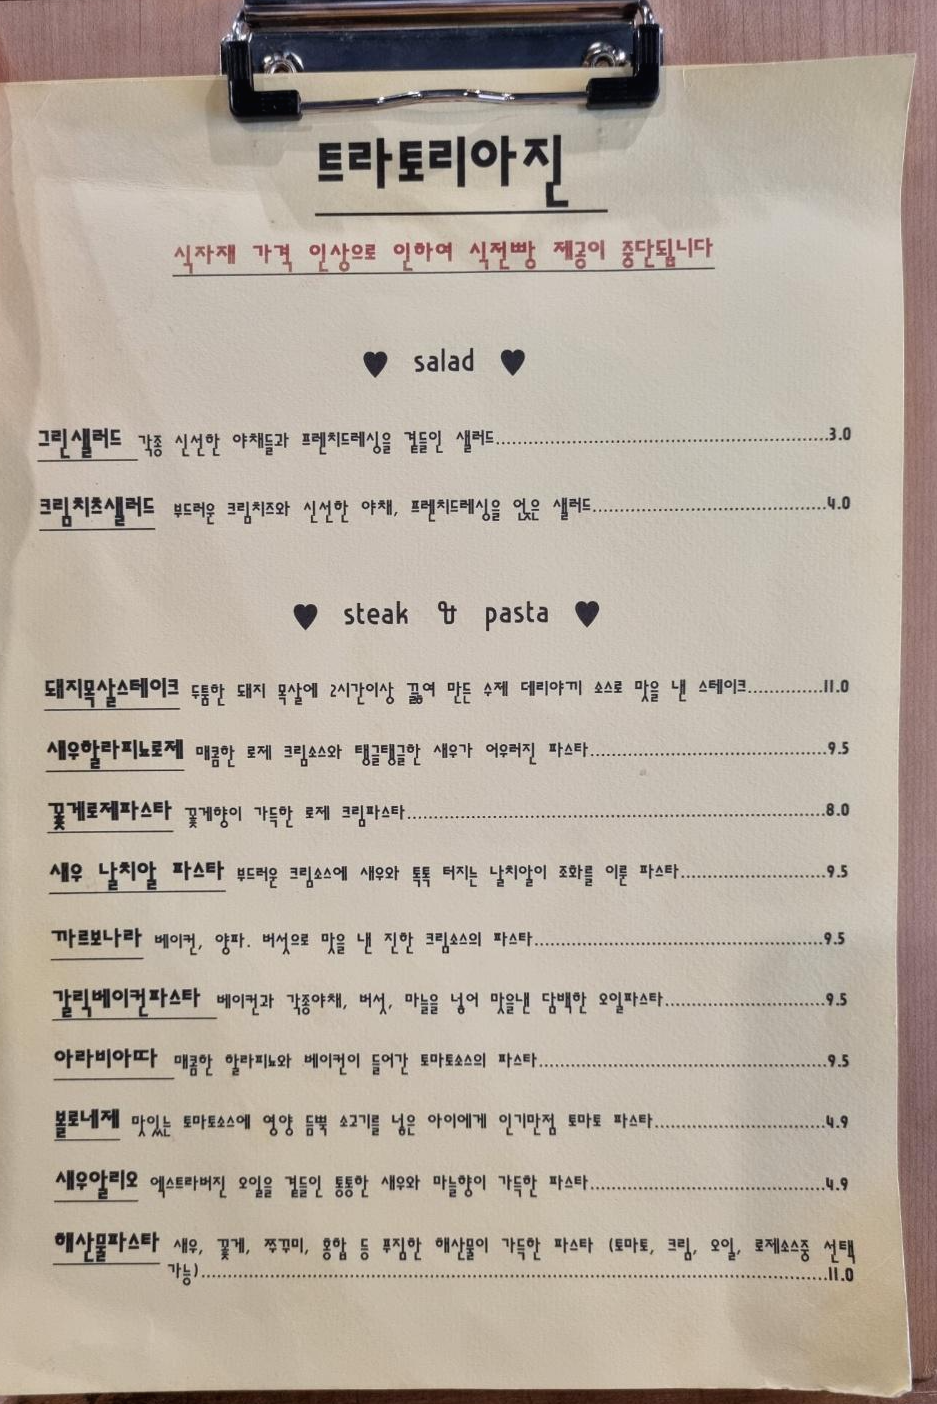 트라토리아진
식자재 가격 인상으로 인하여 식전빵 제공이 중단됩니다
♥ salad ♥
그린샐러드 각종 신선한 야채들과 프렌치드레싱을 곁들인 샐러드......3.0
크림치츠샐러드 부드러운 크림치즈와 신선한 야채, 프렌치드레싱을 얹은 샐러드......4.0
♥ steak & pasta ♥
돼지목살스테이크 두툼한 돼지 목살에 2시간이상 끓여 만든 수제 데리야끼 소스로 맛을 낸 스테이크......11.0
새우할라피뇨로제 매콤한 로제 크림소스와 탱글탱글한 새우가 어우러진 파스타......9.5
꽃게로제파스타 꽃게향이 가득한 로제 크림파스타......8.0
새우 날치알 파스타 부드러운 크림소스에 새우와 톡톡 터지는 날치알이 조화를 이룬 파스타......9.5
까르보나라 베이컨, 양파. 버섯으로 맛을 낸 진한 크림소스의 파스타......9.5
갈릭베이컨파스타 베이컨과 각종야채, 버섯, 마늘을 넣어 맛을낸 담백한 오일파스타......9.5
아라비아따 매콤한 할라피뇨와 베이컨이 들어간 토마토소스의 파스타......9.5
볼로네제 맛있는 토마토소스에 영양 듬뿍 소고기를 넣은 아이에게 인기만점 토마토 파스타......4.9
새우알리오 엑스트라버진 오일을 곁들인 통통한 새우와 마늘향이 가득한 파스타......4.9
해산물파스타 새우, 꽃게, 쭈꾸미, 홍합 등 푸짐한 해산물이 가득한 파스타 (토마토, 크림, 오일, 로제소스중 선택
가능)......11.0